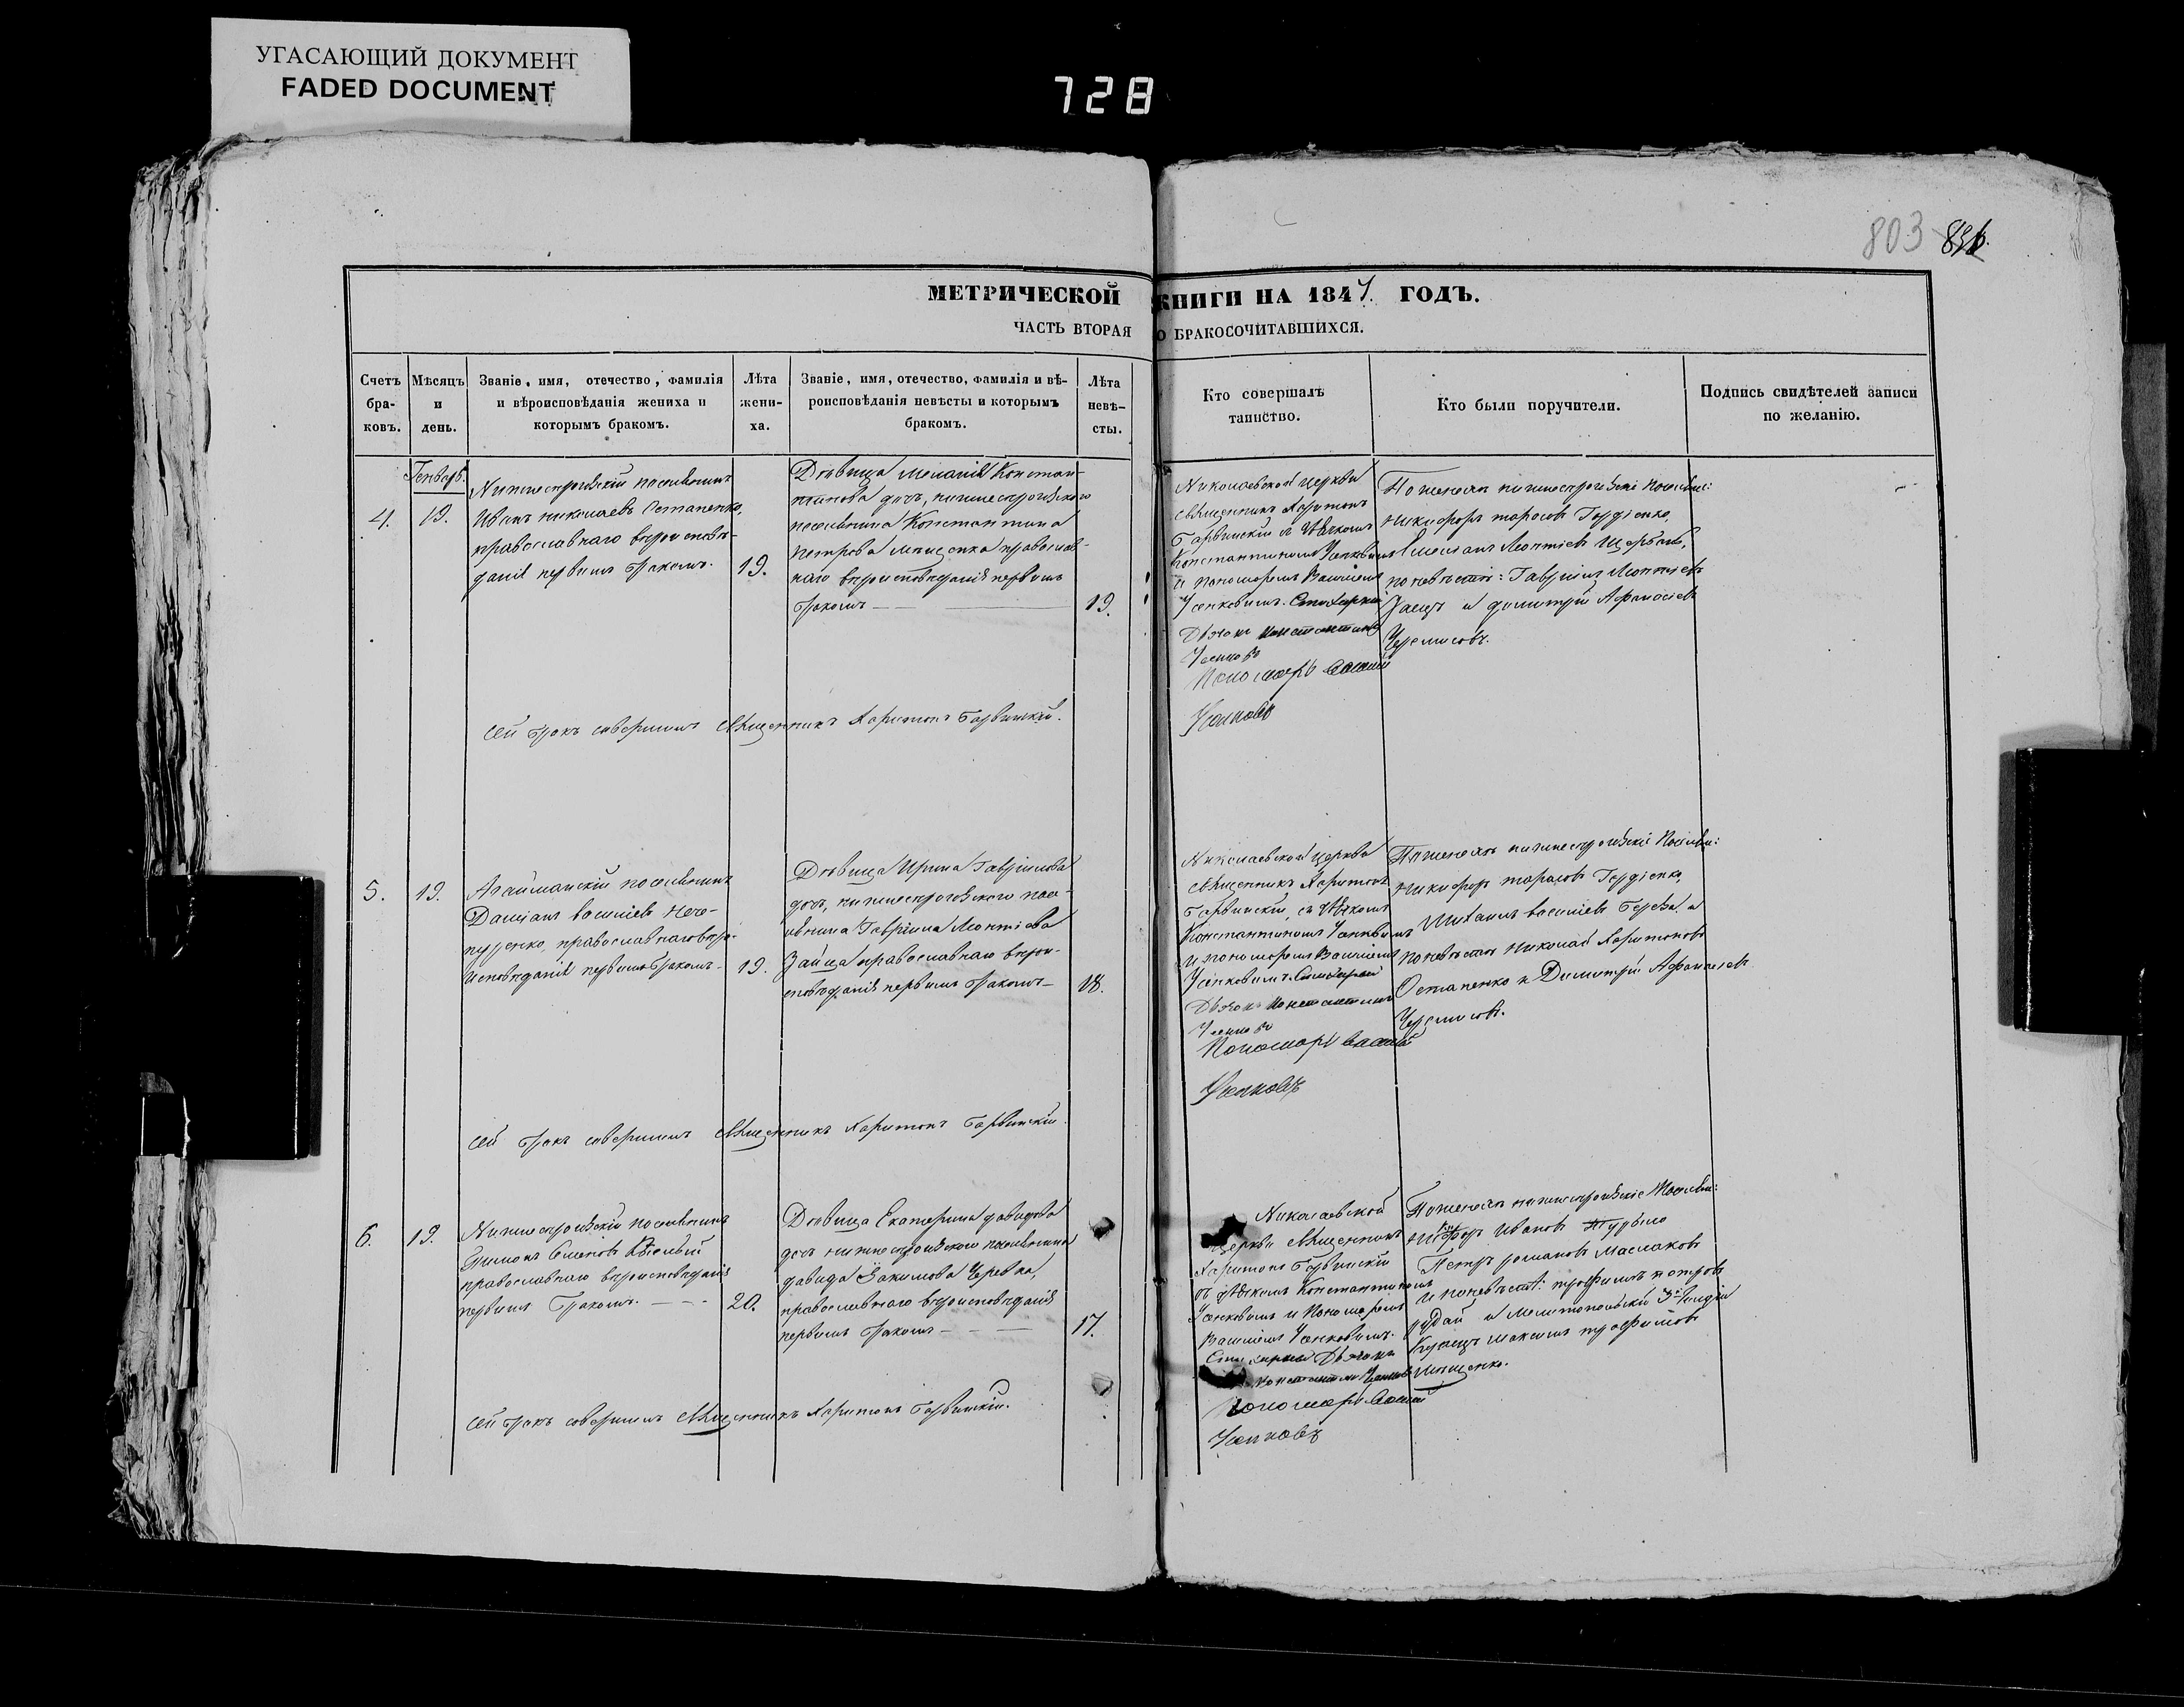 УГАСАЮЩИЙ ДОКУМЕНТ
FADED DOCUMENT
728
803
МЕТРИЧЕСКОЙ КНИГИ НА 1847. ГОДЪ.
ЧАСТЬ ВТОРАЯ О БРАКОСОЧИТАВШИХСЯ.
Счетъ бра- ковъ.
Мѣсяцъ и день.
Званіе, имя, отечество, фамилія и вѣроисповѣданія жениха и которымъ бракомъ.
Лѣта жени- ха.
Званіе, имя, отечество, фамилія и вѣ- роисповѣданія невѣсты и которымъ бракомъ.
Лѣта невѣ- сты.
Кто совершалъ таинство.
Кто были поручители.
Подпись свидѣтелей записи по желанію.
Генварь.
4.
19.
Нижнесѣрогозскій поселянинъ
Иванъ Николаевъ Остапенко,
православнаго вѣроисповѣ-
данія первымъ бракомъ.
19.
Дѣвица Меланія Констан-
тинова дочь, нижнесѣрогозскаго
поселянина Константина
Петрова православ-
наго вѣроисповѣданія первымъ
бракомъ
19.
Николаевской церкви
священникъ Харитонъ
Барвинскій съ дьячкомъ
Константиномъ
и пономаремъ Василіемъ
Дьячокъ Константинъ
Пономарь Василій
По женихѣ нижнесѣрогозскіе поселян:
Никифоръ Тарасовъ Гордіенко,
Леонтіевъ Щербакъ,
по невѣстѣ: Гавріилъ Леонтіевъ
Заецъ и Димитрій Афанасіевъ
Черемисовъ.
Сей бракъ совершилъ священникъ Харитонъ Барвинскій.
5.
19.
Агайманскій поселянинъ
Даміанъ Василіевъ Нечи-
пуренко, православнаго вѣро-
исповѣданія первымъ бракомъ.
19.
Дѣвица Ирина Гавріилова
дочь, нижнесѣрогозскаго посе-
лянина Гавріила Леонтіева
Зайца православнаго вѣрои-
сповѣданія первымъ бракомъ
18.
Николаевской церкви
священникъ Харитонъ
Барвинскій, съ дьячкомъ
Константиномъ
и пономаремъ Василіемъ
Дьячокъ Константинъ
Пономарь Василій
По женихѣ нижнесѣрогозскіе поселян:
Никифоръ Тарасовъ Гордіенко,
Михаилъ Василіевъ Береза, и
по невѣстѣ Николай Харитоновъ
Остапенко и Димитрій Афанасіевъ
Черемисовъ.
Сей бракъ совершилъ священникъ Харитонъ Барвинскій.
6.
19.
Нижнесѣрогозскій поселянинъ
Семеновъ
православнаго вѣроисповѣданія
первымъ бракомъ.
20.
Дѣвица Екатерина Давидова
дочь нижнесѣрогозскаго поселянина
Давида Іакимова Черевка,
православнаго вѣроисповѣданія
первымъ бракомъ
17.
Николаевской
церкви священникъ
Харитонъ Барвинскій
съ дьячкомъ Константиномъ
и пономаремъ
Василіемъ
Дьячокъ
Константинъ
Пономарь Василій
По женихѣ нижнесѣрогозскіе поселян:
Ивановъ
Петръ Романовъ Маслаковъ
и по невѣстѣ: Трофимъ Петровъ
Рудай и Мелитопольскій 3й гильдіи
Купецъ Максимъ Трофимовъ
Сей бракъ совершилъ священникъ Харитонъ Барвинскій.